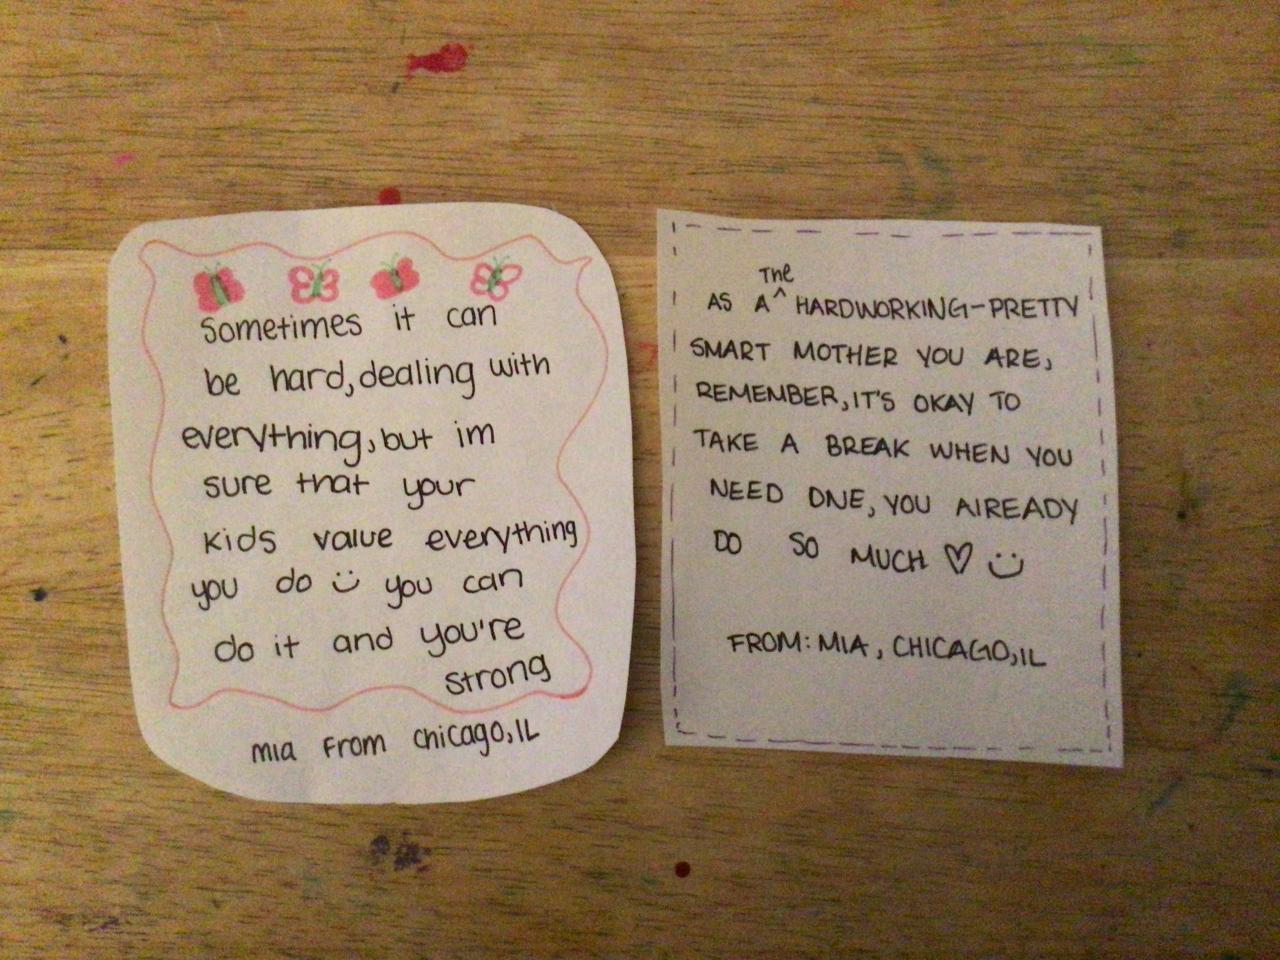 sometimes it can
be hard, dealing with
everything, but im
sure that your
kids value everything
you do :) you can
do it and you're
strong
mia from chicago, IL
The
AS A^ HARDWORKING-PRETTY
SMART MOTHER YOU ARE,
REMEMBER, IT'S OKAY TO
TAKE A BREAK WHEN YOU
NEED ONE, YOU AlREADY
DO SO MUCH ♡ :)
FROM: MIA, CHICAGO, IL